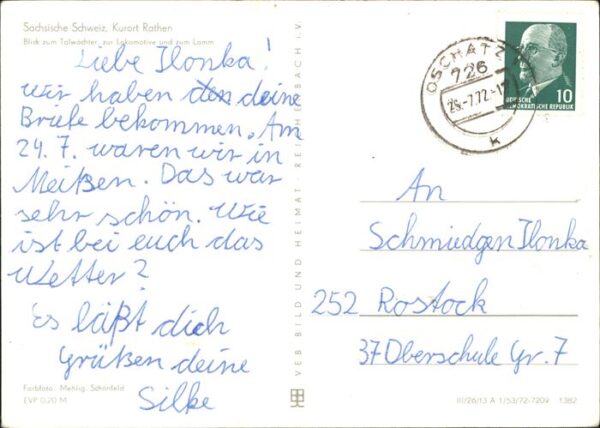 Sächsische Schweiz, Kurort Rathen
Blick zum Talwächter, zur Lokomotive und zum Lamm
Liebe Ilonka!
Wir haben den deine
Briefe bekommen. Am
24.7. waren wir in
Meißen. Das war
sehr schön. Wie
ist bei euch das
Wetter?
Es läßt dich
Grüßen deine
Silke
Farbfoto: Mehlig, Schönfeld
EVP 0,20 M
VEB BILD UND HEIMAT REICHENBACH i.V.
OSCHATZ
726
k
10
DEUTSCHE
DEMOKRATISCHE REPUBLIK
An
Schmiedgen Ilonka
252 Rostock
37 Oberschule Gr. 7
III/26/13 A 1/53/72-7209 1382